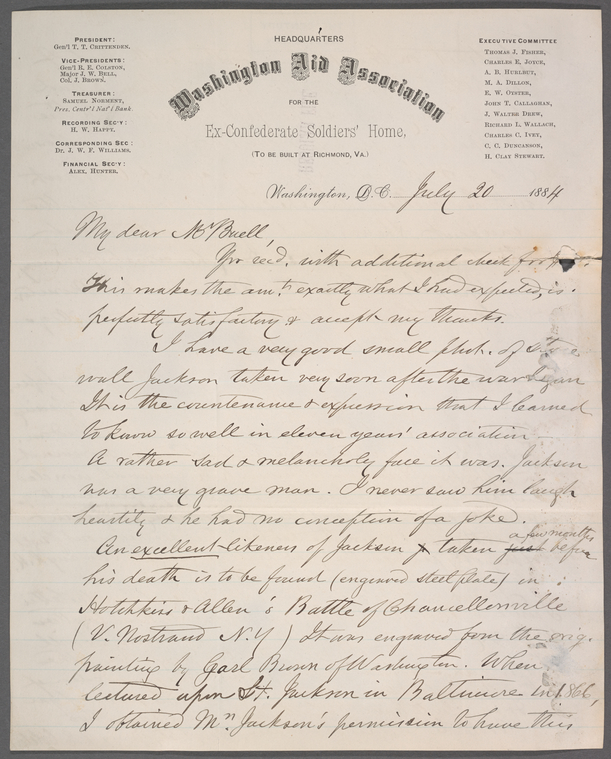 HEADQUARTERS
Washington Aid Association
FOR THE
Ex-Confederate Soldiers' Home,
(TO BE BUILT AT RICHMOND, VA.)
PRESIDENT:
Gen'l T. T. CRITTENDEN.
VICE-PRESIDENTS:
Gen'l R. E. COLSTON,
Major J. W. BELL,
Col. J. BROWN.
TREASURER:
SAMUEL NORMENT,
Pres. Centr'l Nat'l Bank.
RECORDING SEC'Y:
H. W. HAPPY.
CORRESPONDING SEC:
Dr. J. W. F. WILLIAMS.
FINANCIAL SEC'Y:
ALEX. HUNTER.
EXECUTIVE COMMITTEE
THOMAS J. FISHER,
CHARLES E. JOYCE,
A. B. HURLBUT,
M. A. DILLON,
E. W. OYSTER,
JOHN T. CALLAGHAN,
J. WALTRE DREW,
RICHARD L. WALLACH,
CHARLES C. IVEY,
C. C. DUNCANSON,
H. CLAY STEWART.
Washington, D.C. July 20 1884
My dear Mr Buell,
Yrs recd. with additional check for
This makes the amt. exactly what I had expected, is
perfectly satisfactory & accept my thanks.
I have a very good small phot. of Stone
wall Jackson taken very soon after the war began
It is the countenance & expression that I learned
to know so well in eleven years' association.
A rather sad & melancholy face it was. Jackson
was a very grave man. I never saw him laugh
heartily & he had no conception of a joke.
An excellent likeness of Jackson taken just a few months before
his death is to be found (engraved steel plate) in
Hotchkiss & Allen's Battle of Chancellorsville
(V. Nostrand N.Y) It was engraved from the orig.
painting by Carl Brown of Washington. When
lectured upon St. Jackson in Baltimore in 1866,
I obtained Mrs Jackson's permission to have this